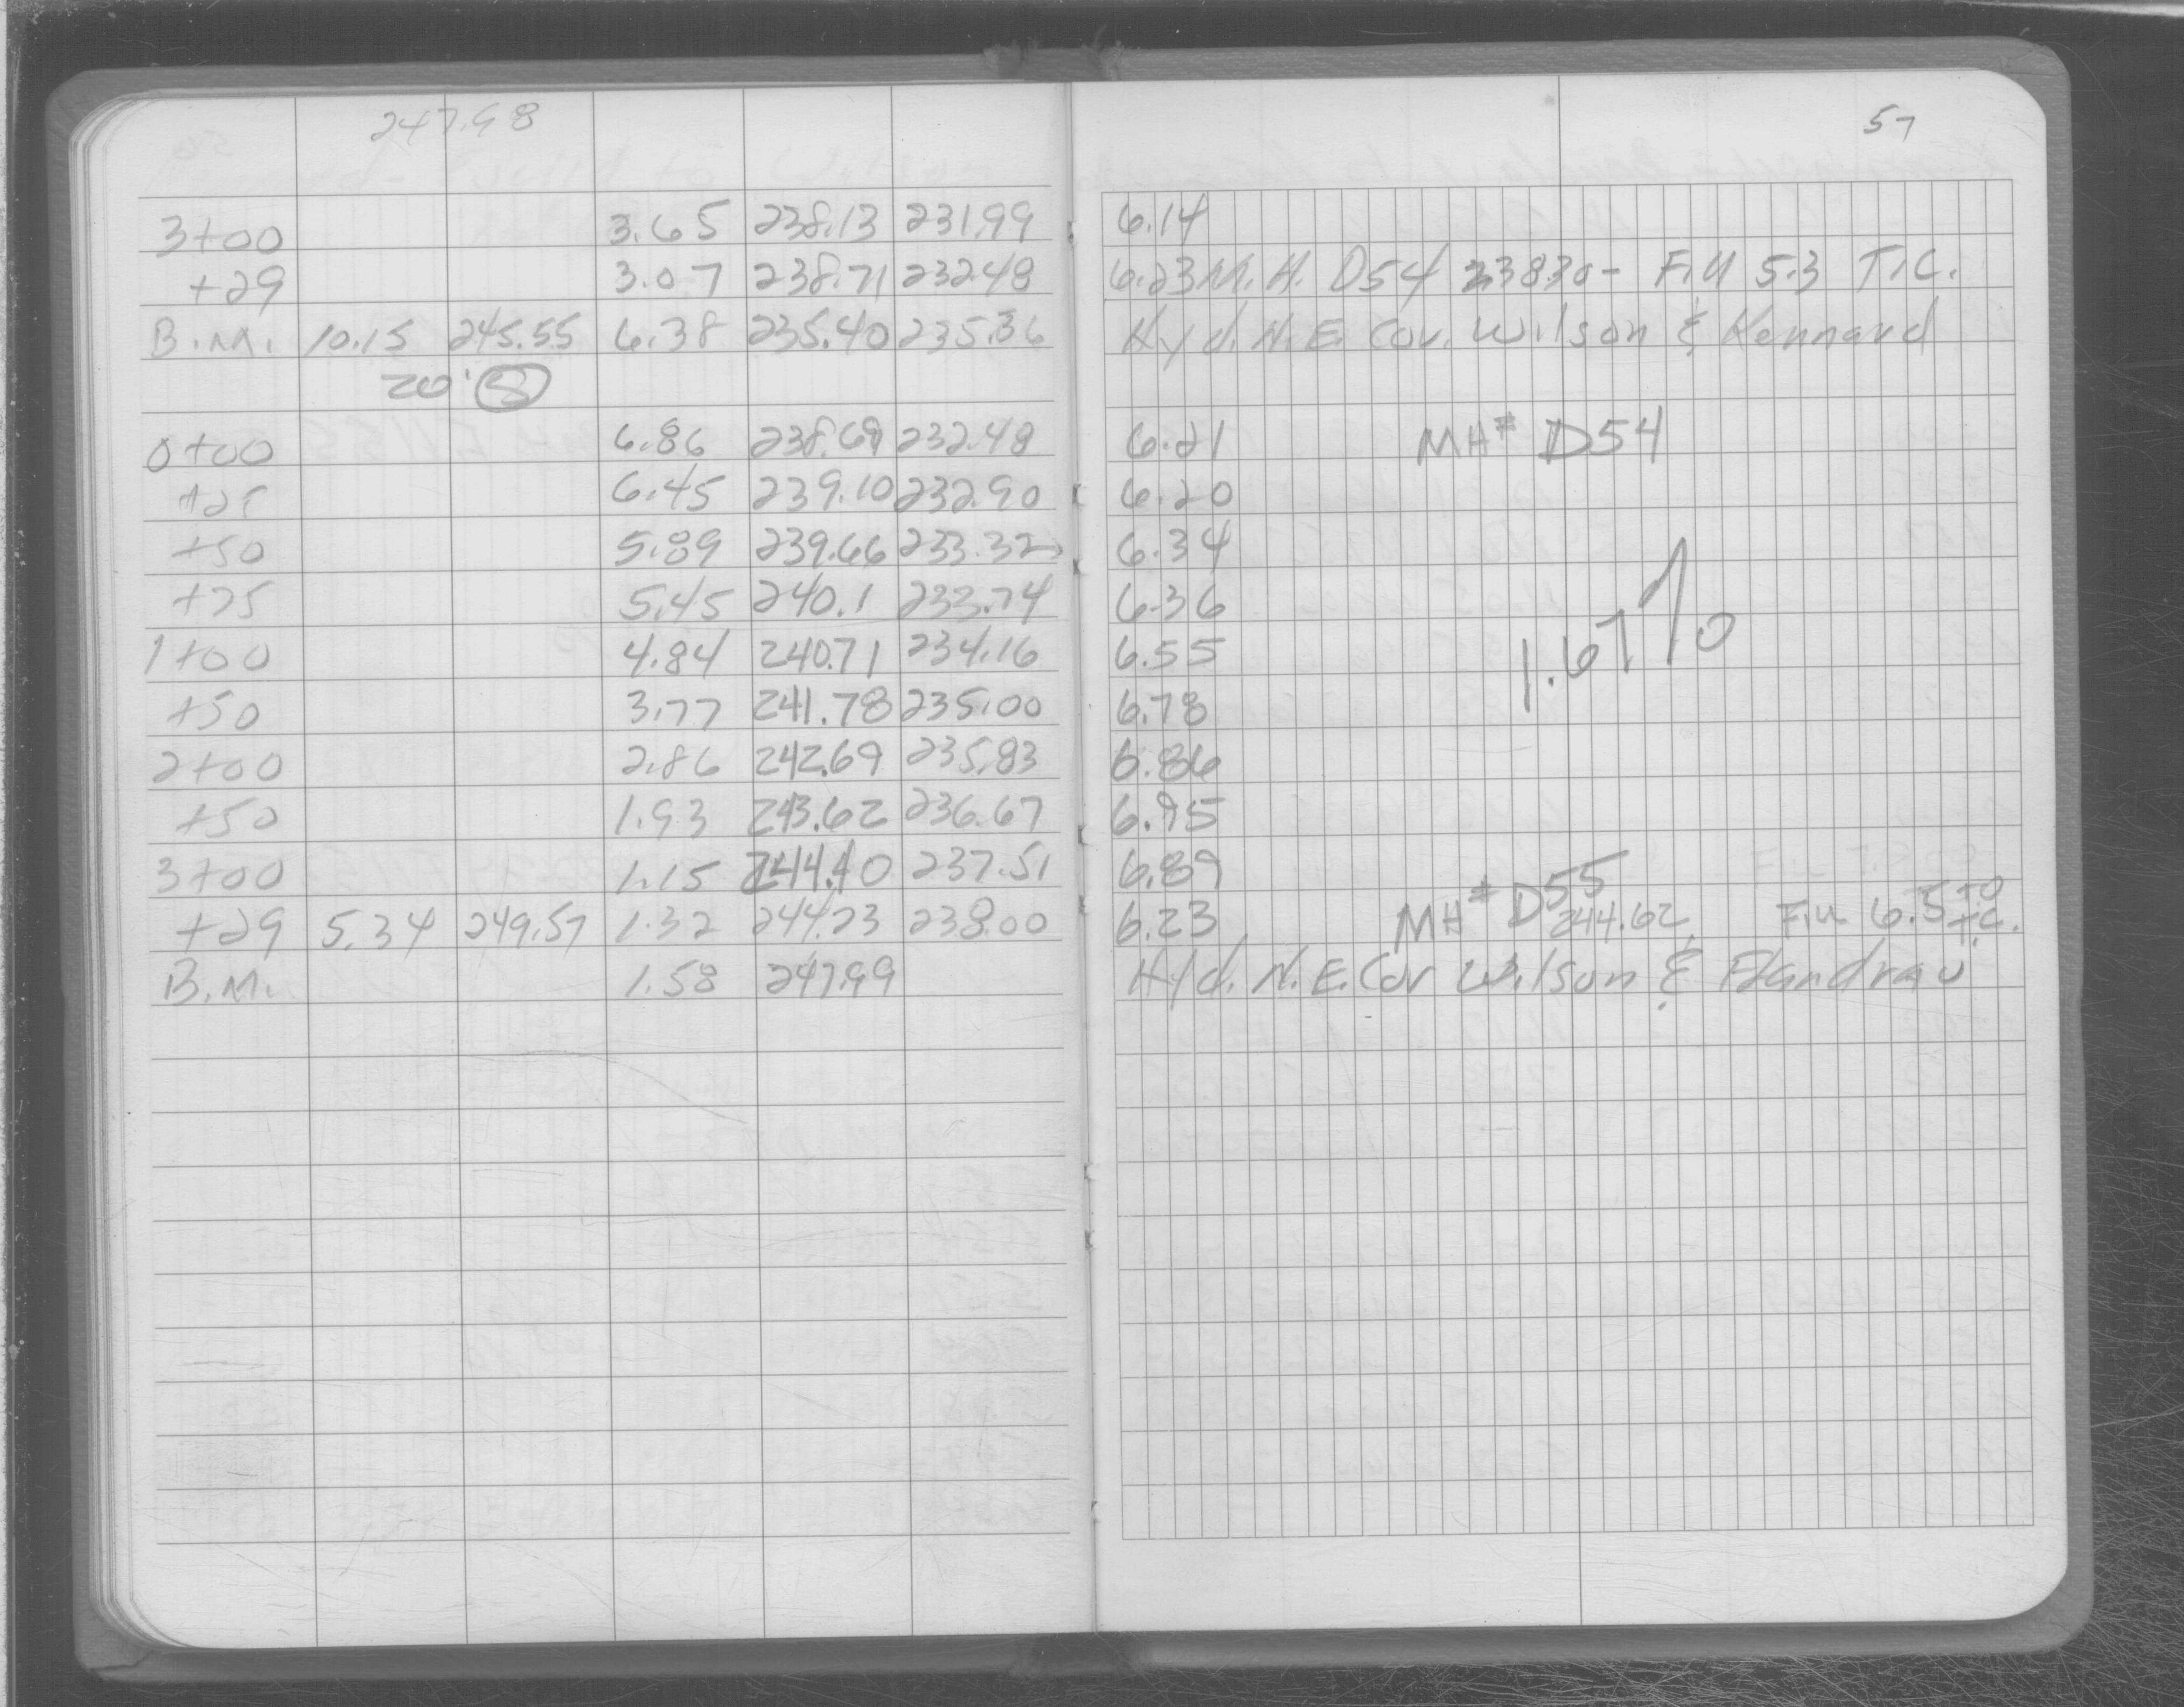 247.98
57
3+00 3.65 238.13 231.99 6.14
+29 3.07 238.71 232.48 6.23 M.H. D54 238.30 - Fill 5.3 T.C.
B.M. 10.15 245.55 6.38 235.40 235.36 Hyd. N.E. Cor. Wilson & Kennard
20' S
0+00 6.86 238.69 232.48 6.21 MH# D54
+25 6.45 239.10 232.90 6.20
+50 5.89 239.66 233.32 6.34
+75 5.45 240.1 233.74 6.36
1+00 4.84 240.71 234.16 6.55 1.67%
+50 3.77 241.78 235.00 6.78
2+00 2.86 242.69 235.83 6.86
+50 1.93 243.62 236.67 6.95
3+00 1.15 244.40 237.51 6.89
+29 5.34 249.57 1.32 244.23 238.00 6.23 MH# D55 244.62 Fill 6.5 to T.C.
B.M. 1.58 247.99 Hyd. N.E. Cor Wilson & Flandrau